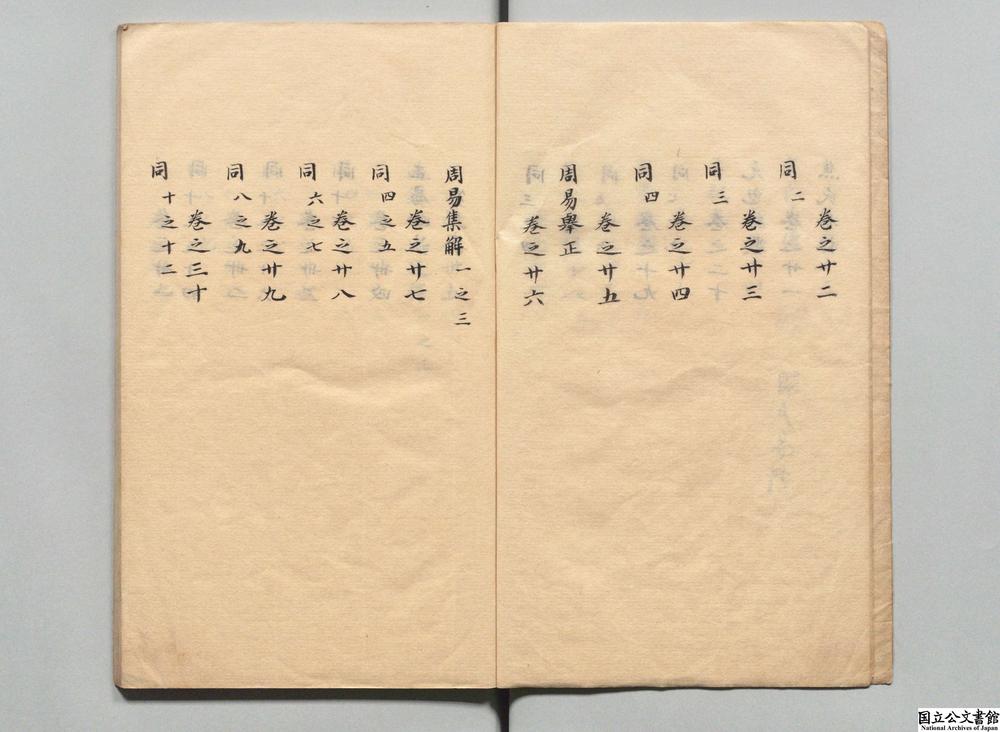 卷之廿二
同二
卷之廿三
同三
卷之廿四
同四
卷之廿五
周易舉正
卷之廿六
周易集解一之三
卷之廿七
同四之五
卷之廿八
同六之七
卷之廿九
同八之九
卷之三十
同十之十二
国立公文書館
National Archives of Japan